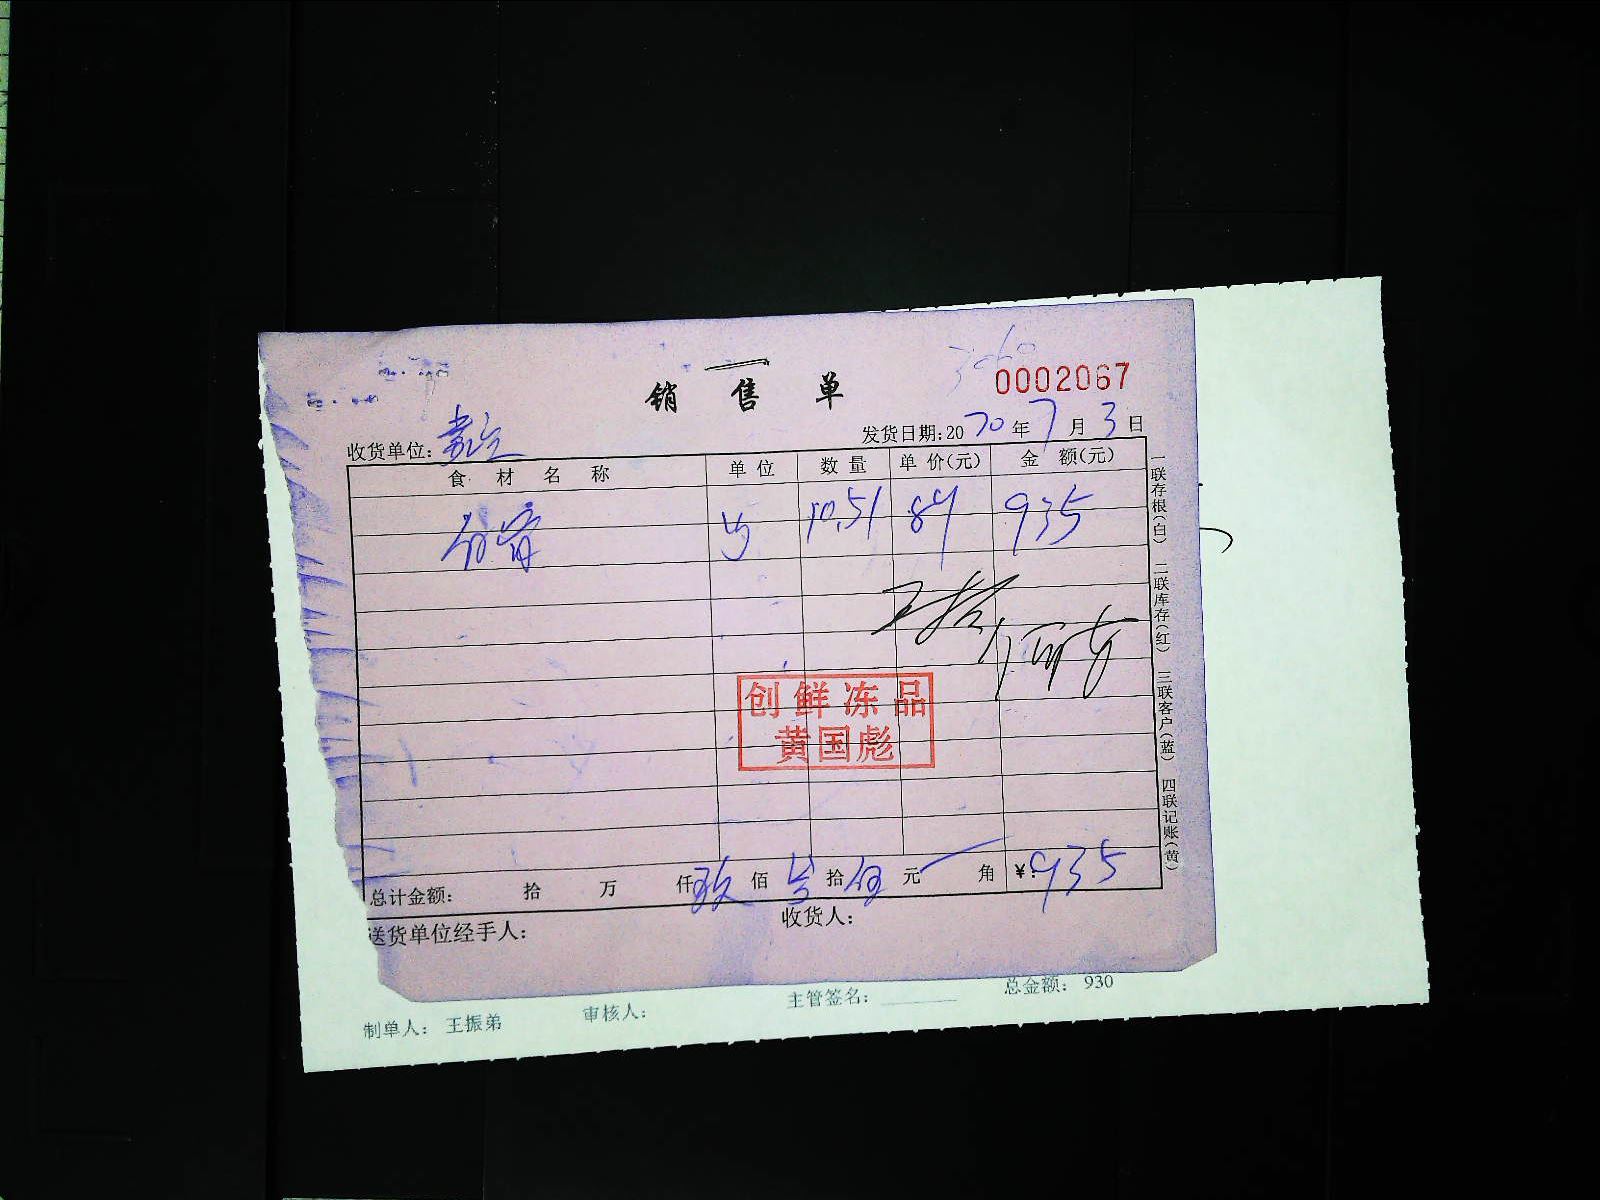 销售单
0002067
收货单位:
发货日期:2020年7月3日
食材名称 单位 数量 单价(元) 金额(元)
10.51 89 935
创鲜冻品
黄国彪
总计金额: 拾 万 仟玖佰叁拾伍元 角 ¥:935
送货单位经手人: 收货人:
一联存根(白) 二联库存(红) 三联客户(蓝) 四联记账(黄)
制单人: 王振弟 审核人: 主管签名: 总金额: 930